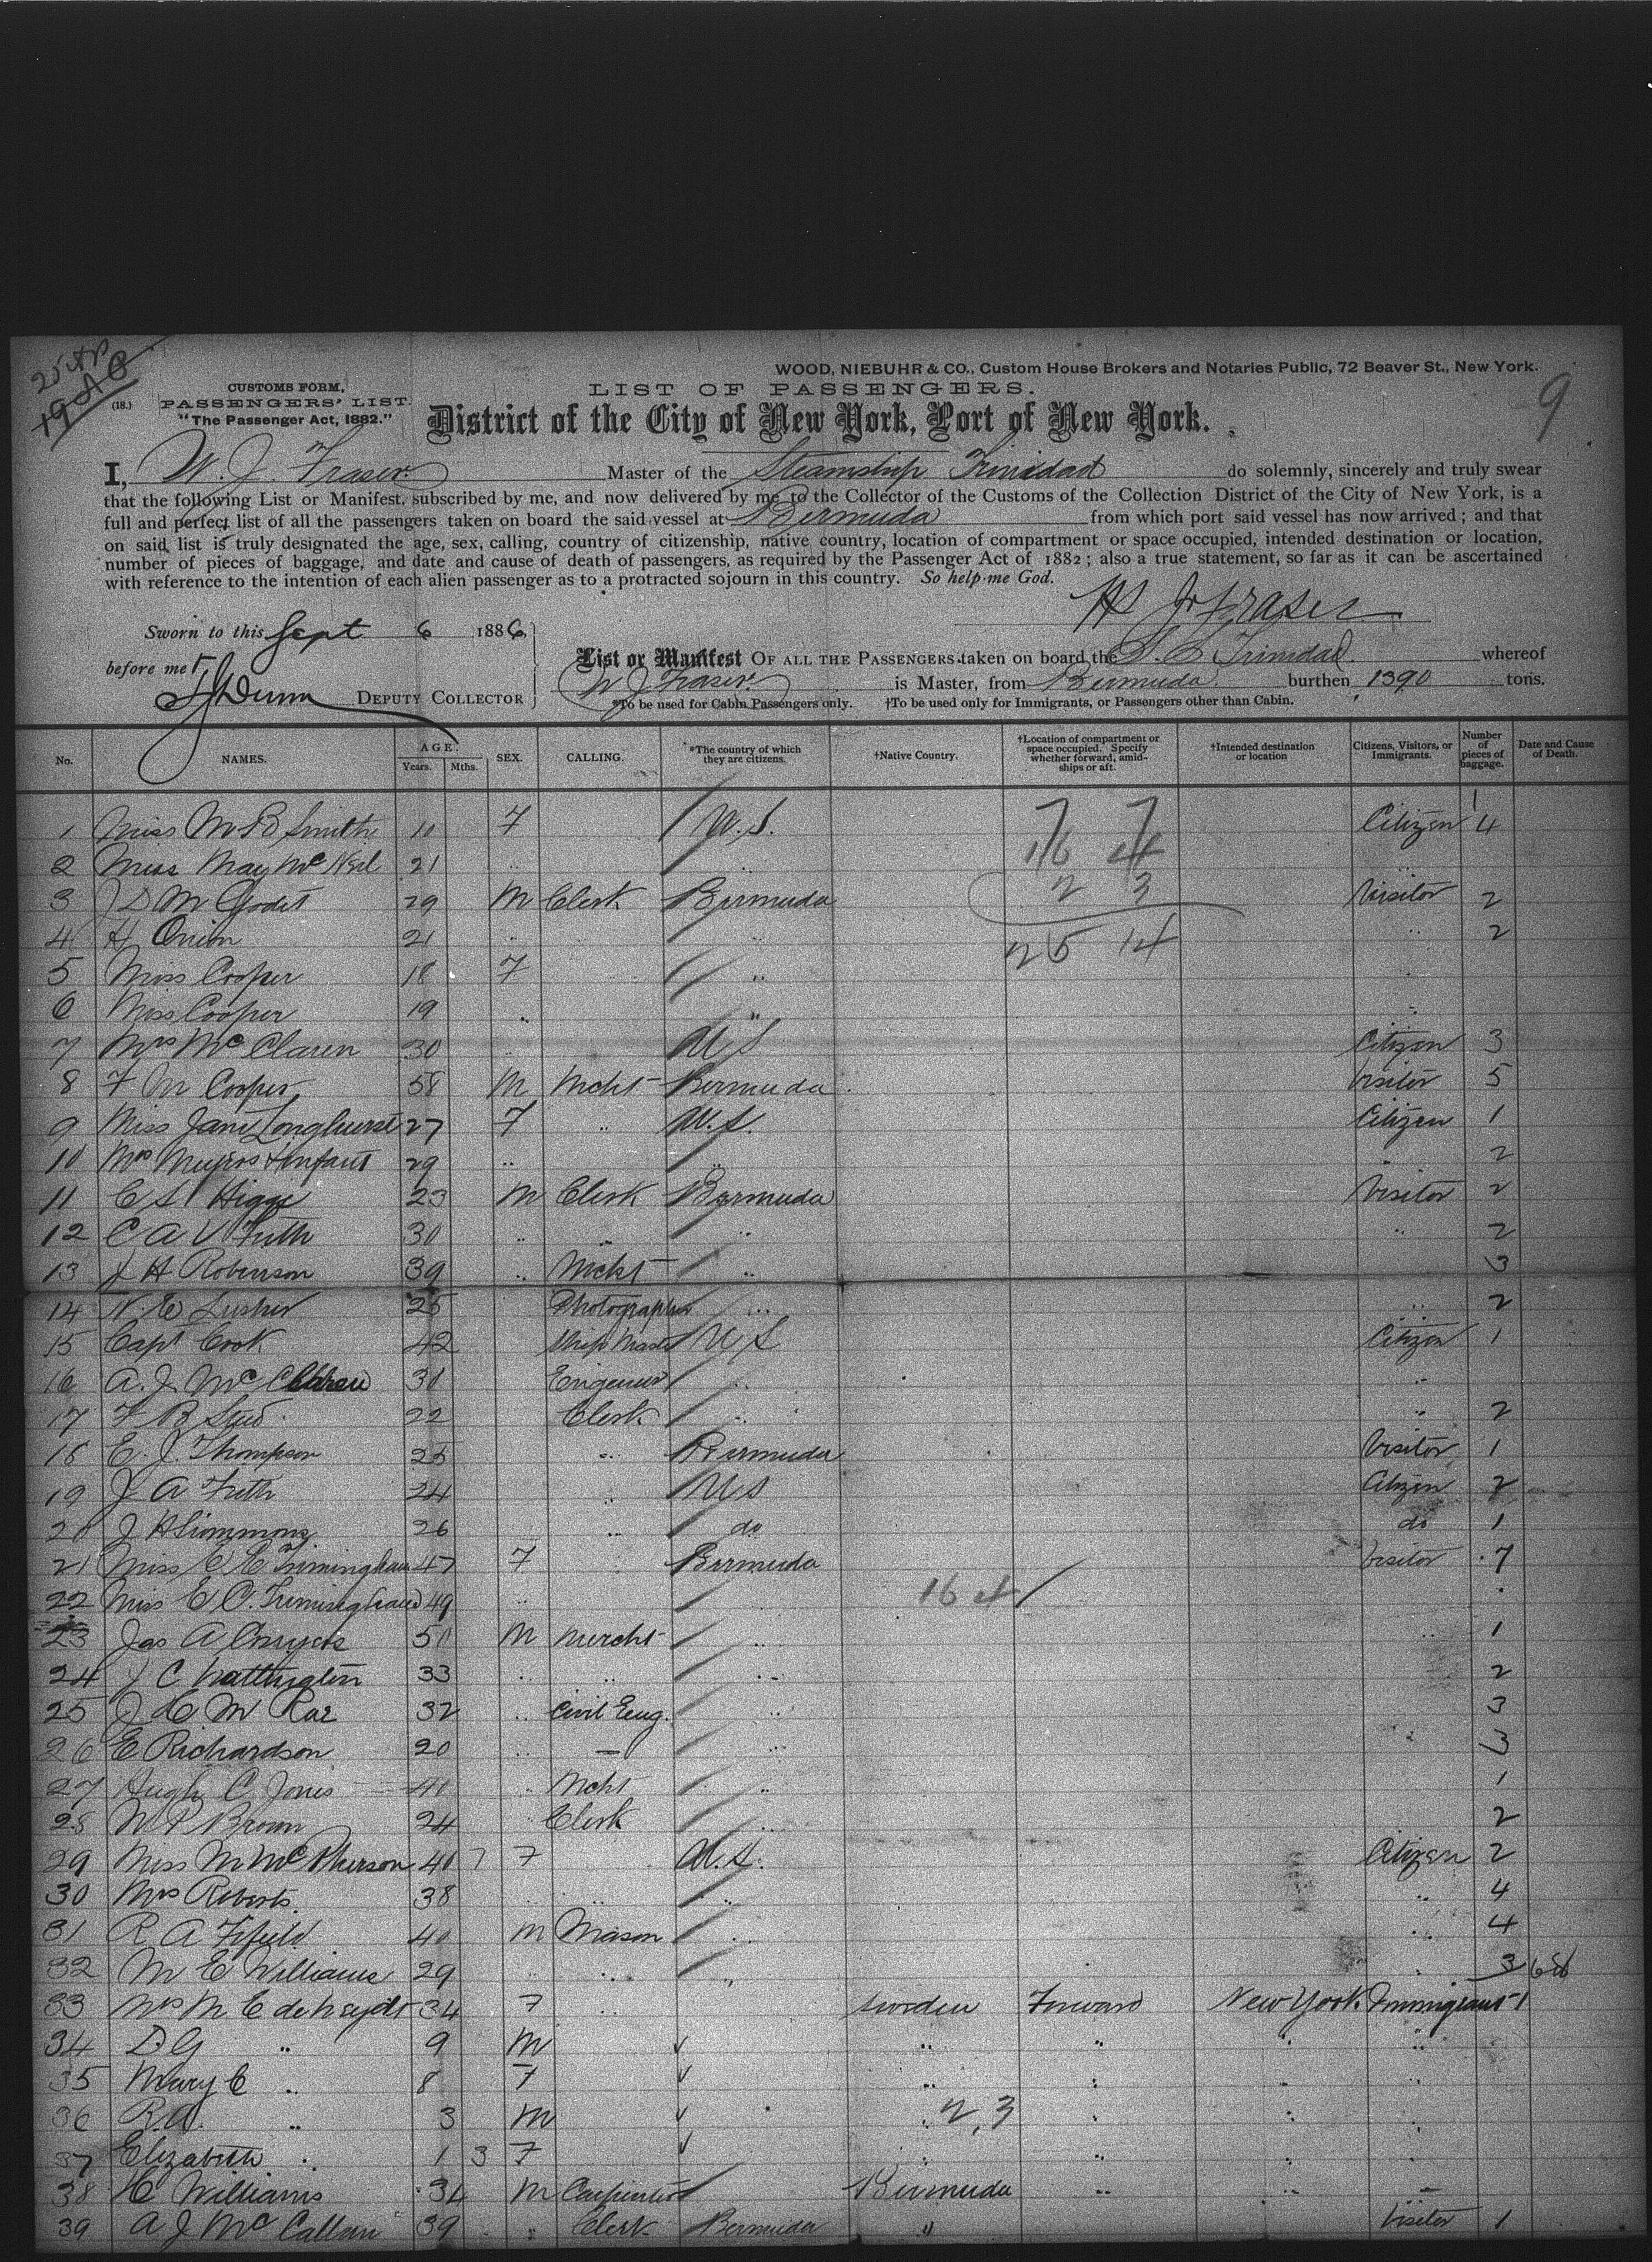 WOOD, NIEBUHR & CO., Custom House Brokers and Notaries Public, 72 Beaver St., New York.
9
(18.)
CUSTOMS FORM,
PASSENGERS' LIST.
"The Passenger Act, 1882."
LIST OF PASSENGERS.
District of the City of New York, Port of New York.
I, W. J. Fraser Master of the Steamship Trinidad do solemnly, sincerely and truly swear
that the following List or Manifest, subscribed by me, and now delivered by me to the Collector of the Customs of the Collection District of the City of New York, is a
full and perfect list of all the passengers taken on board the said vessel at Bermuda from which port said vessel has now arrived; and that
on said list is truly designated the age, sex, calling, country of citizenship, native country, location of compartment or space occupied, intended destination or location,
number of pieces of baggage, and date and cause of death of passengers, as required by the Passenger Act of 1882; also a true statement, so far as it can be ascertained
with reference to the intention of each alien passenger as to a protracted sojourn in this country. So help me God.
W J Fraser
Sworn to this Sept 6 1886
before me
DEPUTY COLLECTOR
List or Manifest OF ALL THE PASSENGERS taken on board the S. S. Trinidad whereof
W J Fraser is Master, from Bermuda burthen 1390 tons.
*To be used for Cabin Passengers only. †To be used only for Immigrants, or Passengers other than Cabin.
No. NAMES. AGE. Years. Mths. SEX. CALLING. *The country of which they are citizens. †Native Country. †Location of compartment or space occupied. Specify whether forward, amidships or aft. †Intended destination or location Citizens, Visitors, or Immigrants. Number of pieces of baggage. Date and Cause of Death.
1 Miss M B Smith F U.S. Citizen 4
2 Miss May Mc Neil 21 ..
3 J D M Godet 29 M Clerk Bermuda Visitor 2
4 H Onion 21 .. .. .. 2
5 Miss Cooper 18 F ..
6 Miss Cooper 19 .. ..
7 Mrs Mc Claren 30 U S Citizen 3
8 F M Cooper 58 M Mcht Bermuda Visitor 5
9 Miss Jane Longhurst 27 F .. U.S. Citizen 1
10 Mrs & Infant 29 .. .. 2
11 C S 23 M Clerk Bermuda Visitor 2
12 C A V Frith 30 .. .. .. .. 2
13 J H Robinson 39 .. Mcht .. 3
14 N. E Lusher 25 Photographer .. .. 2
15 Capt Cook 42 Ship Master U S Citizen 1
16 A. J. Mc 30 .. ..
17 F B 22 Clerk .. .. 2
18 E. J. Thompson 25 .. Bermuda Visitor 1
19 J A Frith 24 .. U S Citizen 2
20 J H Simmons 26 .. do do 1
21 Miss C E Trimingham 47 F Bermuda Visitor 7
22 Miss E C. Trimingham 49 ..
23 Jas A Conyers 50 M Mercht .. .. 1
24 J C Watlington 33 .. .. .. 2
25 J H M Rae 32 .. Civil Eng. .. 3
26 E Richardson 20 .. — .. 3
27 Hugh C Jones Mcht .. 1
28 W P Brown 24 Clerk .. 2
29 Miss M Mc Pherson F U.S. Citizen 2
30 Mrs Roberts 38 .. .. .. 4
31 R A Fifield M Mason .. .. 4
32 M E Williams 29 .. .. .. 3
33 Mrs M E 34 F .. Sweden Forward New York Immigrant 1
34 D. G .. 9 M .. .. .. ..
35 Mary E .. 8 F .. .. .. ..
36 R. A. .. 3 M .. .. .. ..
37 Elizabeth .. 1 3 F .. .. .. ..
38 H Williams M Carpenter Bermuda .. .. ..
39 A J Mc Callan 39 .. Clerk Bermuda .. Visitor 1